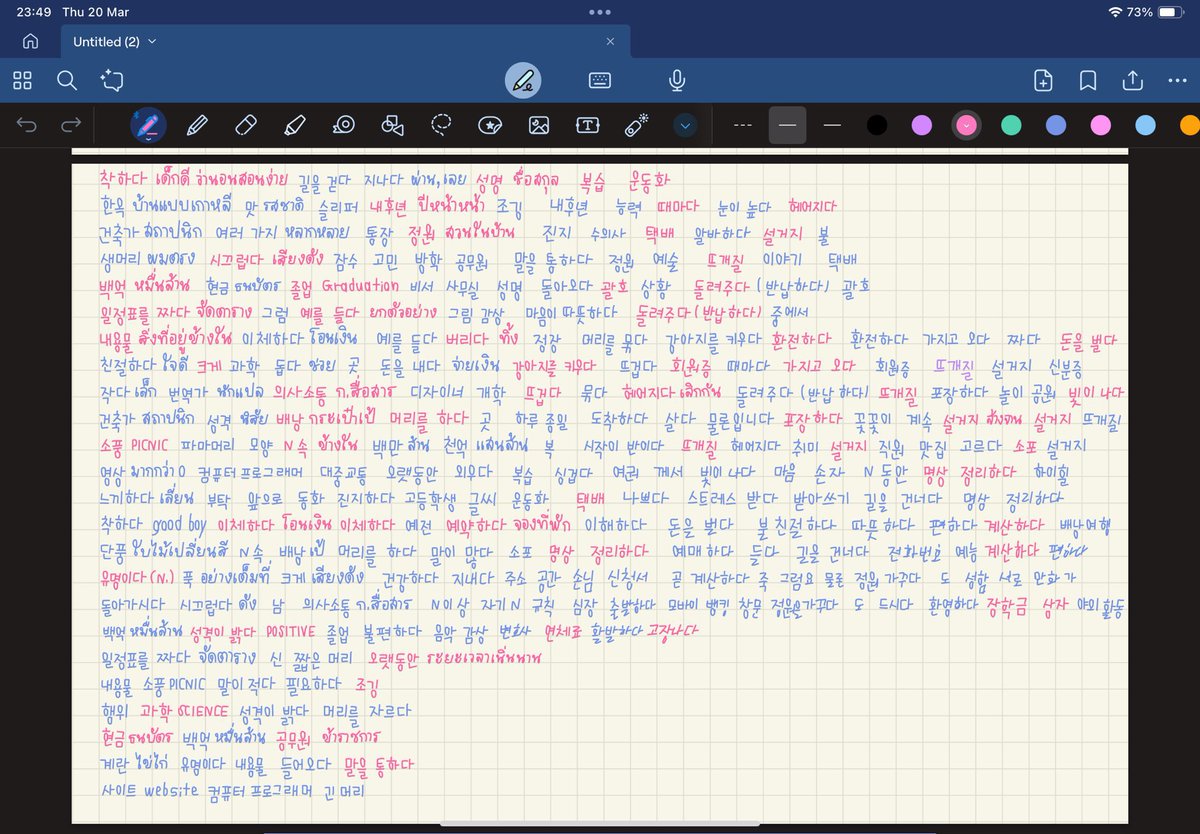 23:49 Thu 20 Mar 73%
Untitled (2)
착하다 เด็กดี ว่านอนสอนง่าย 길을 걷다 지나다 ผ่าน, เลย 성명 ชื่อสกุล 복습 운동화
한옥 บ้านแบบเกาหลี 맛 รสชาติ 슬리퍼 내후년 ปีหน้าหน้า 조깅 내후년 능력 때마다 눈이 높다 헤어지다
건축가 สถาปนิก 여러 가지 หลากหลาย 통장 정원 สวนในบ้าน 진지 수의사 택배 알바하다 설거지 불
생머리 ผมตรง 시끄럽다 เสียงดัง 잠수 고민 방학 공무원 말을 통하다 정원 예술 뜨개질 이야기 택배
백억 หมื่นล้าน 현금 ธนบัตร 졸업 Graduation 비서 사무실 성명 돌아오다 괄호 상황 돌려주다 (반납하다) 괄호
일정표를 짜다 จัดตาราง 그럼 예를 들다 ยกตัวอย่าง 그림 감상 마음이 따뜻하다 돌려주다 (반납하다) 중에서
내용물 สิ่งที่อยู่ข้างใน 이체하다 โอนเงิน 예를 들다 버리다 ทิ้ง 정장 머리를 묶다 강아지를 키우다 환전하다 환전하다 가지고 오다 짜다 돈을 벌다
친절하다 ใจดี 크게 과학 돕다 ช่วย 곳 돈을 내다 จ่ายเงิน 강아지를 키우다 뜨겁다 회원증 때마다 가지고 오다 회원증 뜨개질 설거지 신분증
작다 เล็ก 번역가 นักแปล 의사소통 ก.สื่อสาร 디자이너 개학 뜨겁다 묶다 헤어지다 เลิกกัน 돌려주다 (반납하다) 뜨개질 포장하다 놀이 공원 빛이 나다
건축가 สถาปนิก 성격 นิสัย 배낭 กระเป๋าเป้ 머리를 하다 곳 하루 종일 도착하다 살다 물론입니다 포장하다 꽃꽂이 계속 설거지 ล้างจาน 설거지 뜨개질
소풍 PICNIC 파마머리 모양 N 속 ข้างใน 백만 ล้าน 천억 แสนล้าน 복 시작이 반이다 뜨개질 헤어지다 취미 설거지 직원 맛집 고르다 소포 설거지
영상 มากกว่า 0 컴퓨터 프로그래머 대중교통 오랫동안 외우다 복습 싱겁다 여권 께서 빛이 나다 마음 손자 N 동안 명상 정리하다 하이힐
느끼하다 เลี่ยน 부탁 앞으로 동화 진지하다 고등학생 글씨 운동화 택배 나쁘다 스트레스 받다 받아쓰기 길을 건너다 명상 정리하다
착하다 good boy 이체하다 โอนเงิน 이체하다 예전 예약하다 จองที่พัก 이해하다 돈을 벌다 불친절하다 따뜻하다 편하다 계산하다 배낭여행
단풍 ใบไม้เปลี่ยนสี N 속 배낭 เป้ 머리를 하다 말이 많다 소포 명상 정리하다 예매하다 듣다 길을 건너다 전화번호 예능 계산하다 편하다
유명이다 (N.) 푹 อย่างเต็มที่ 크게 เสียงดัง 건강하다 지내다 주소 공간 손님 신청서 곧 계산하다 죽 그럼요 물론 정원 가꾸다 도 성함 서로 만화가
돌아가시다 시끄럽다 ดัง 남 의사소통 ก.สื่อสาร N 이상 자기 N 규칙 심장 출발하다 모바이 뱅킹 창문 정원을 가꾸다 도 드시다 환영하다 장학금 상자 야외 활동
백억 หมื่นล้าน 성격이 밝다 POSITIVE 졸업 불편하다 음악 감상 변호사 연체료 활발하다 고장나다
일정표를 짜다 จัดตาราง 신 짧은 머리 오랫동안 ระยะเวลาเนิ่นนาน
내용물 소풍 PICNIC 말이 적다 필요하다 조깅
행위 과학 SCIENCE 성격이 밝다 머리를 자르다
현금 ธนบัตร 백억 หมื่นล้าน 공무원 ข้าราชการ
계란 ไข่ไก่ 유명이다 내용물 들어오다 말을 통하다
사이트 website 컴퓨터 프로그래머 긴 머리